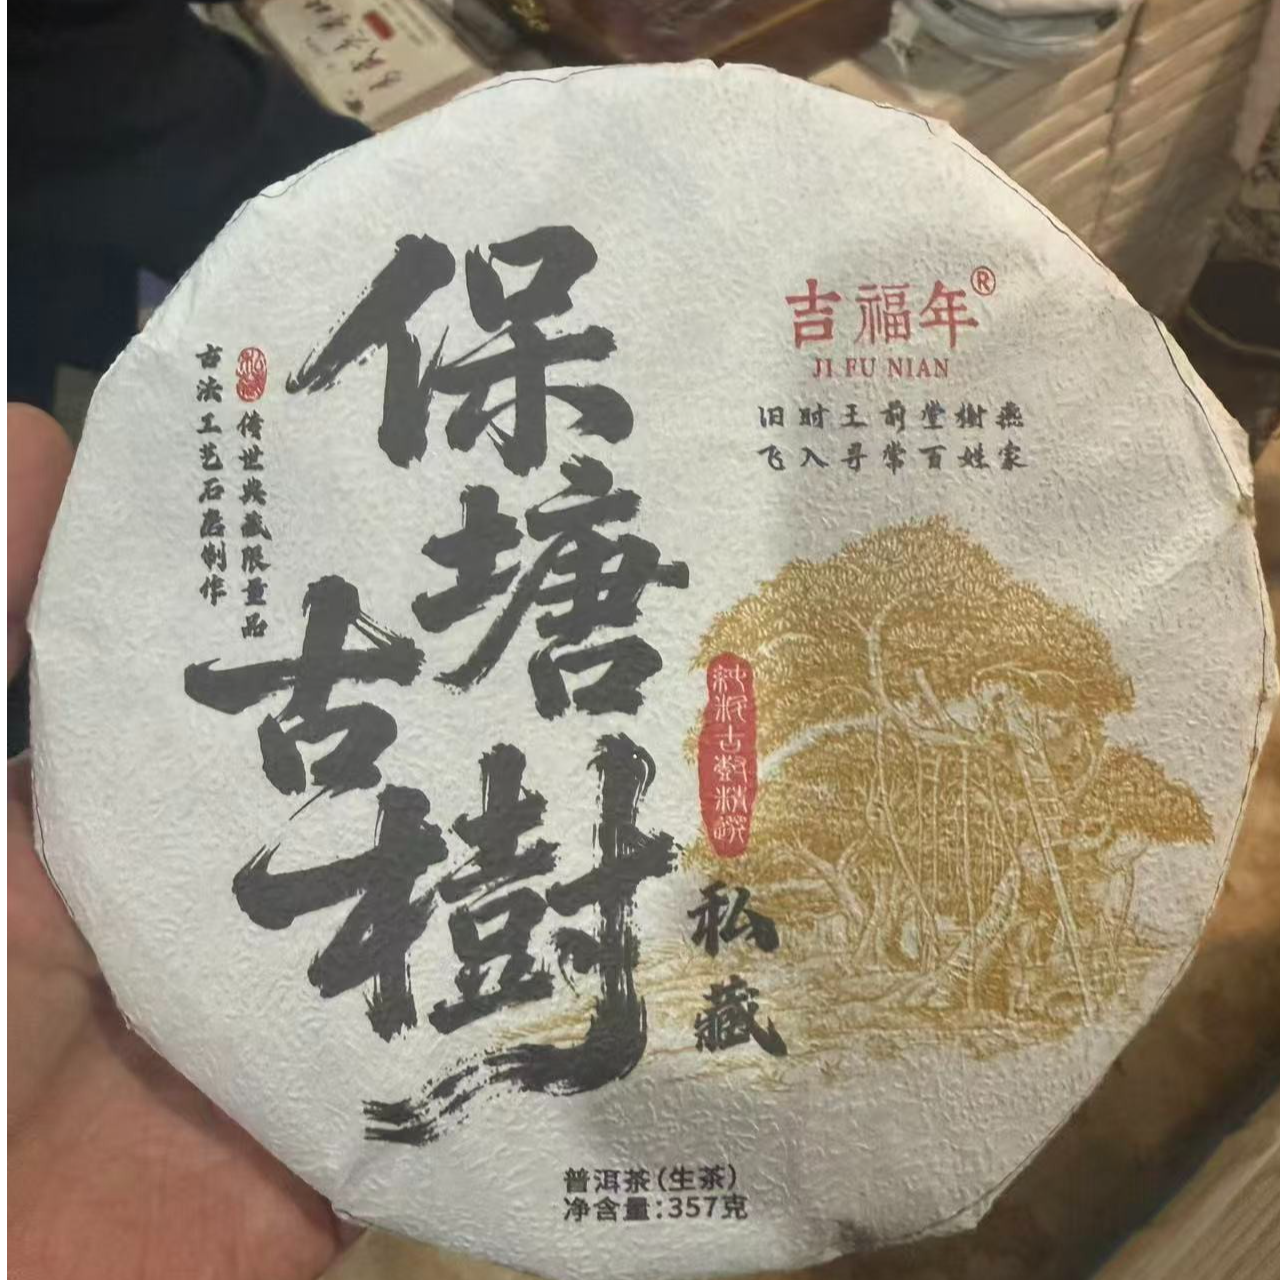 保塘
古樹
私藏
吉福年®
JI FU NIAN
旧时王前堂樹燕
飞入寻常百姓家
私藏
传世典藏限量品
古法工艺石磨制作
純粹古樹精選
普洱茶(生茶)
净含量:357克